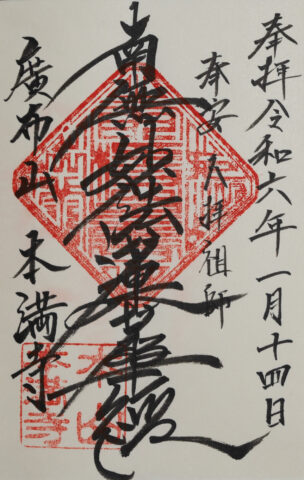 奉拝令和六年一月十四日
奉安天拝祖師
南無妙法蓮華経
廣布山 本満寺